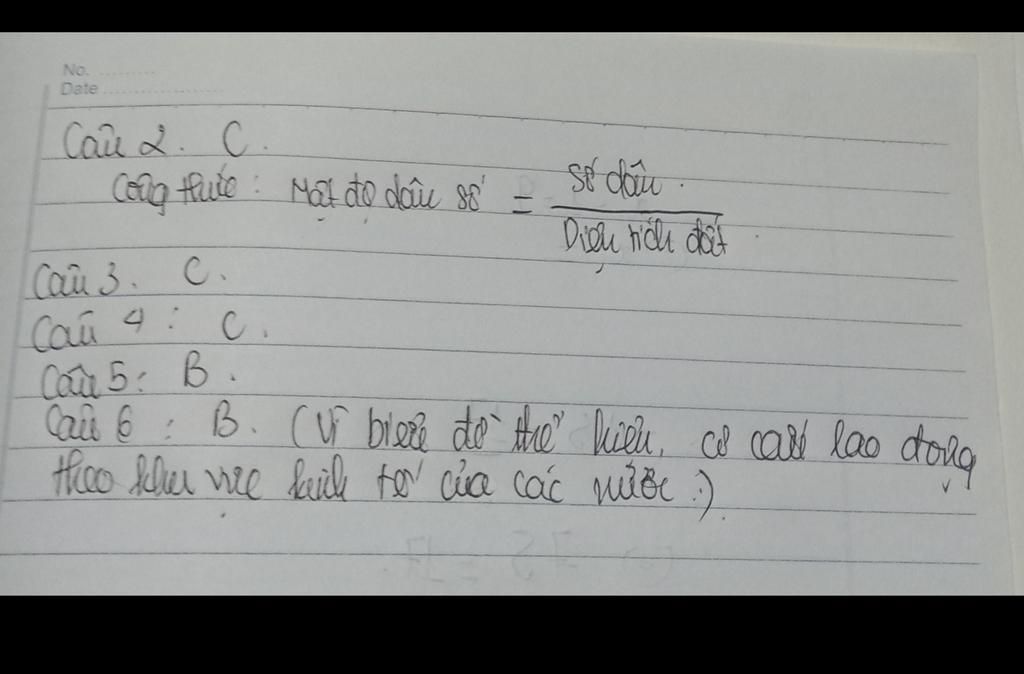 No. ............
Date ........................
Câu 2. C.
Công thức: Mật độ dâu số = Số dâu. / Diện tích đất.
Câu 3. C.
Câu 4: C.
Câu 5: B.
Câu 6: B. (Vì biểu đồ thể hiện, cơ cấu lao động
theo khu vực kinh tế của các nước.)